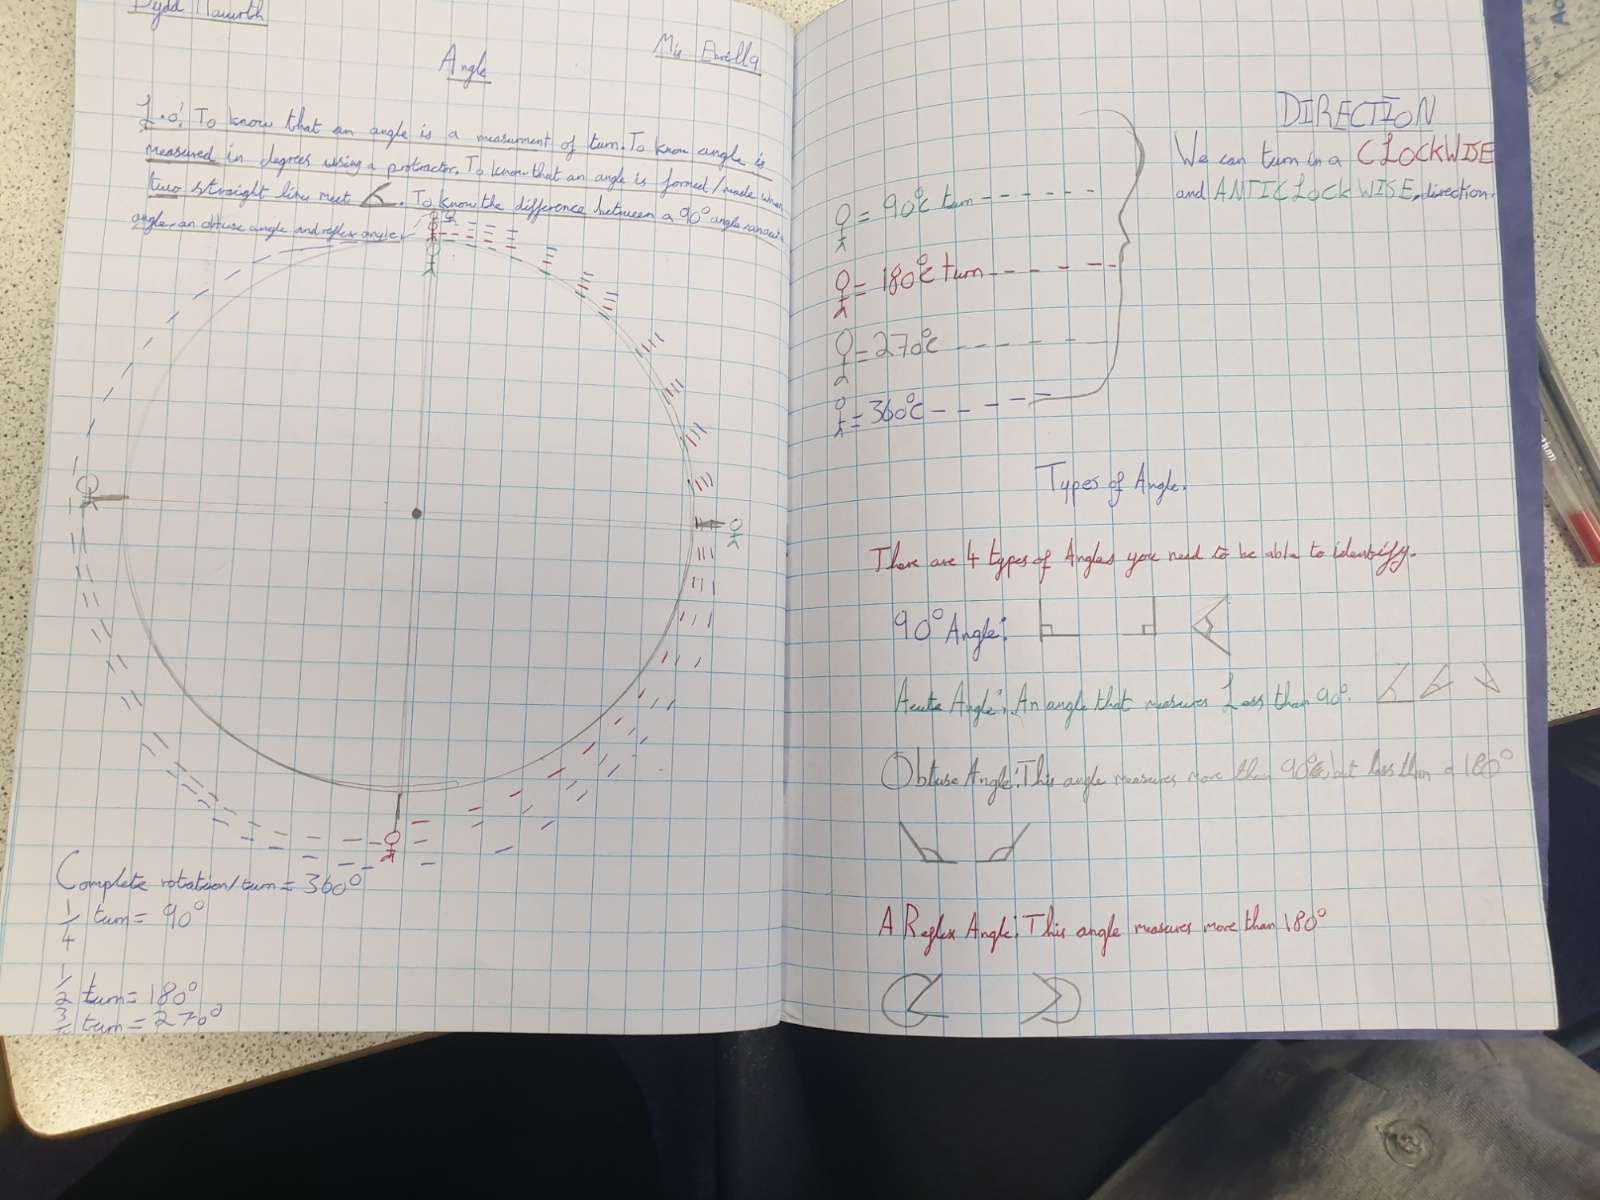 Dydd Mawrth
Mis Ebrill 9
Angle
L.o: To know that an angle is a measurment of turn. To know angle is
measured in degrees using a protractor. To know that an angle is formed/made when
two straight line meet. To know the difference between a 90° angle, an acute
angle, an obtuse angle and reflex angle.
Complete rotation/turn = 360°
1/4 turn = 90°
1/2 turn = 180°
turn = 270°
DIRECTION
We can turn in a CLOCKWISE
and ANTICLOCKWISE direction.
= 90°c turn
= 180°c turn
= 270°c
= 360°c
Types of Angle.
There are 4 types of Angles you need to be able to identify.
90° Angle:
Acute Angle: An angle that measures Less than 90°.
Obtuse Angle: This angle measures more than 90°c but less than a 180°
A Reflex Angle: This angle measures more than 180°